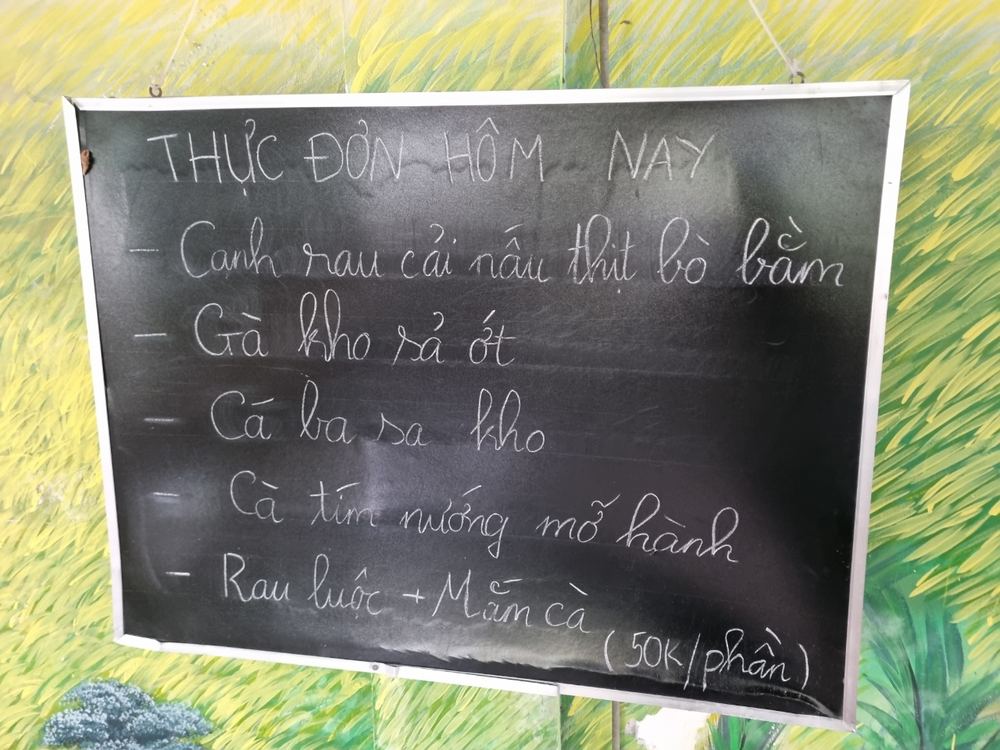 THỰC ĐƠN HÔM NAY
- Canh rau cải nấu thịt bò bằm
- Gà kho sả ớt
- Cá ba sa kho
- Cà tím nướng mỡ hành
- Rau luộc + Mắm cà
(50K/phần)